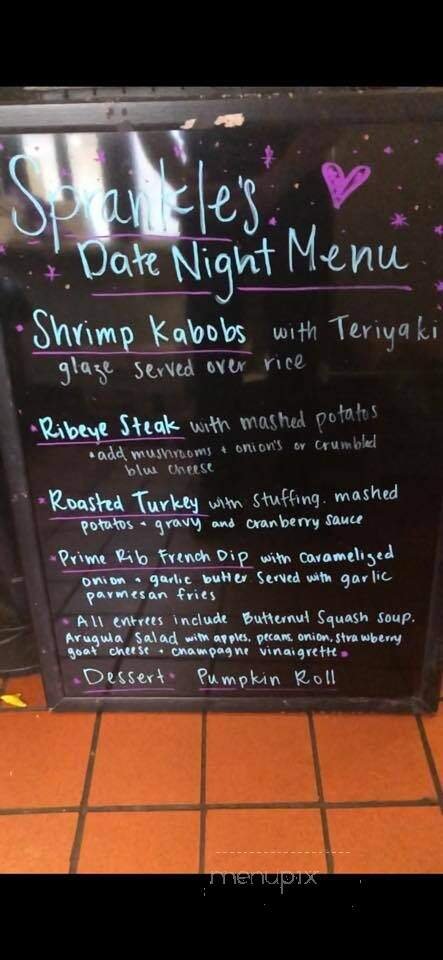 Sprankle's
Date Night Menu
Shrimp Kabobs with Teriyaki
glaze served over rice
Ribeye Steak with mashed potatos
*add mushrooms + onion's or crumbled
blue cheese
Roasted Turkey with stuffing. mashed
potatos + gravy and cranberry sauce
Prime Rib French Dip with caramelized
onion + garlic butter served with garlic
parmesan fries
All entrees include Butternut Squash soup.
Arugula Salad with apples, pecans, onion, strawberry
goat cheese + champagne vinaigrette
Dessert Pumpkin Roll
menupix